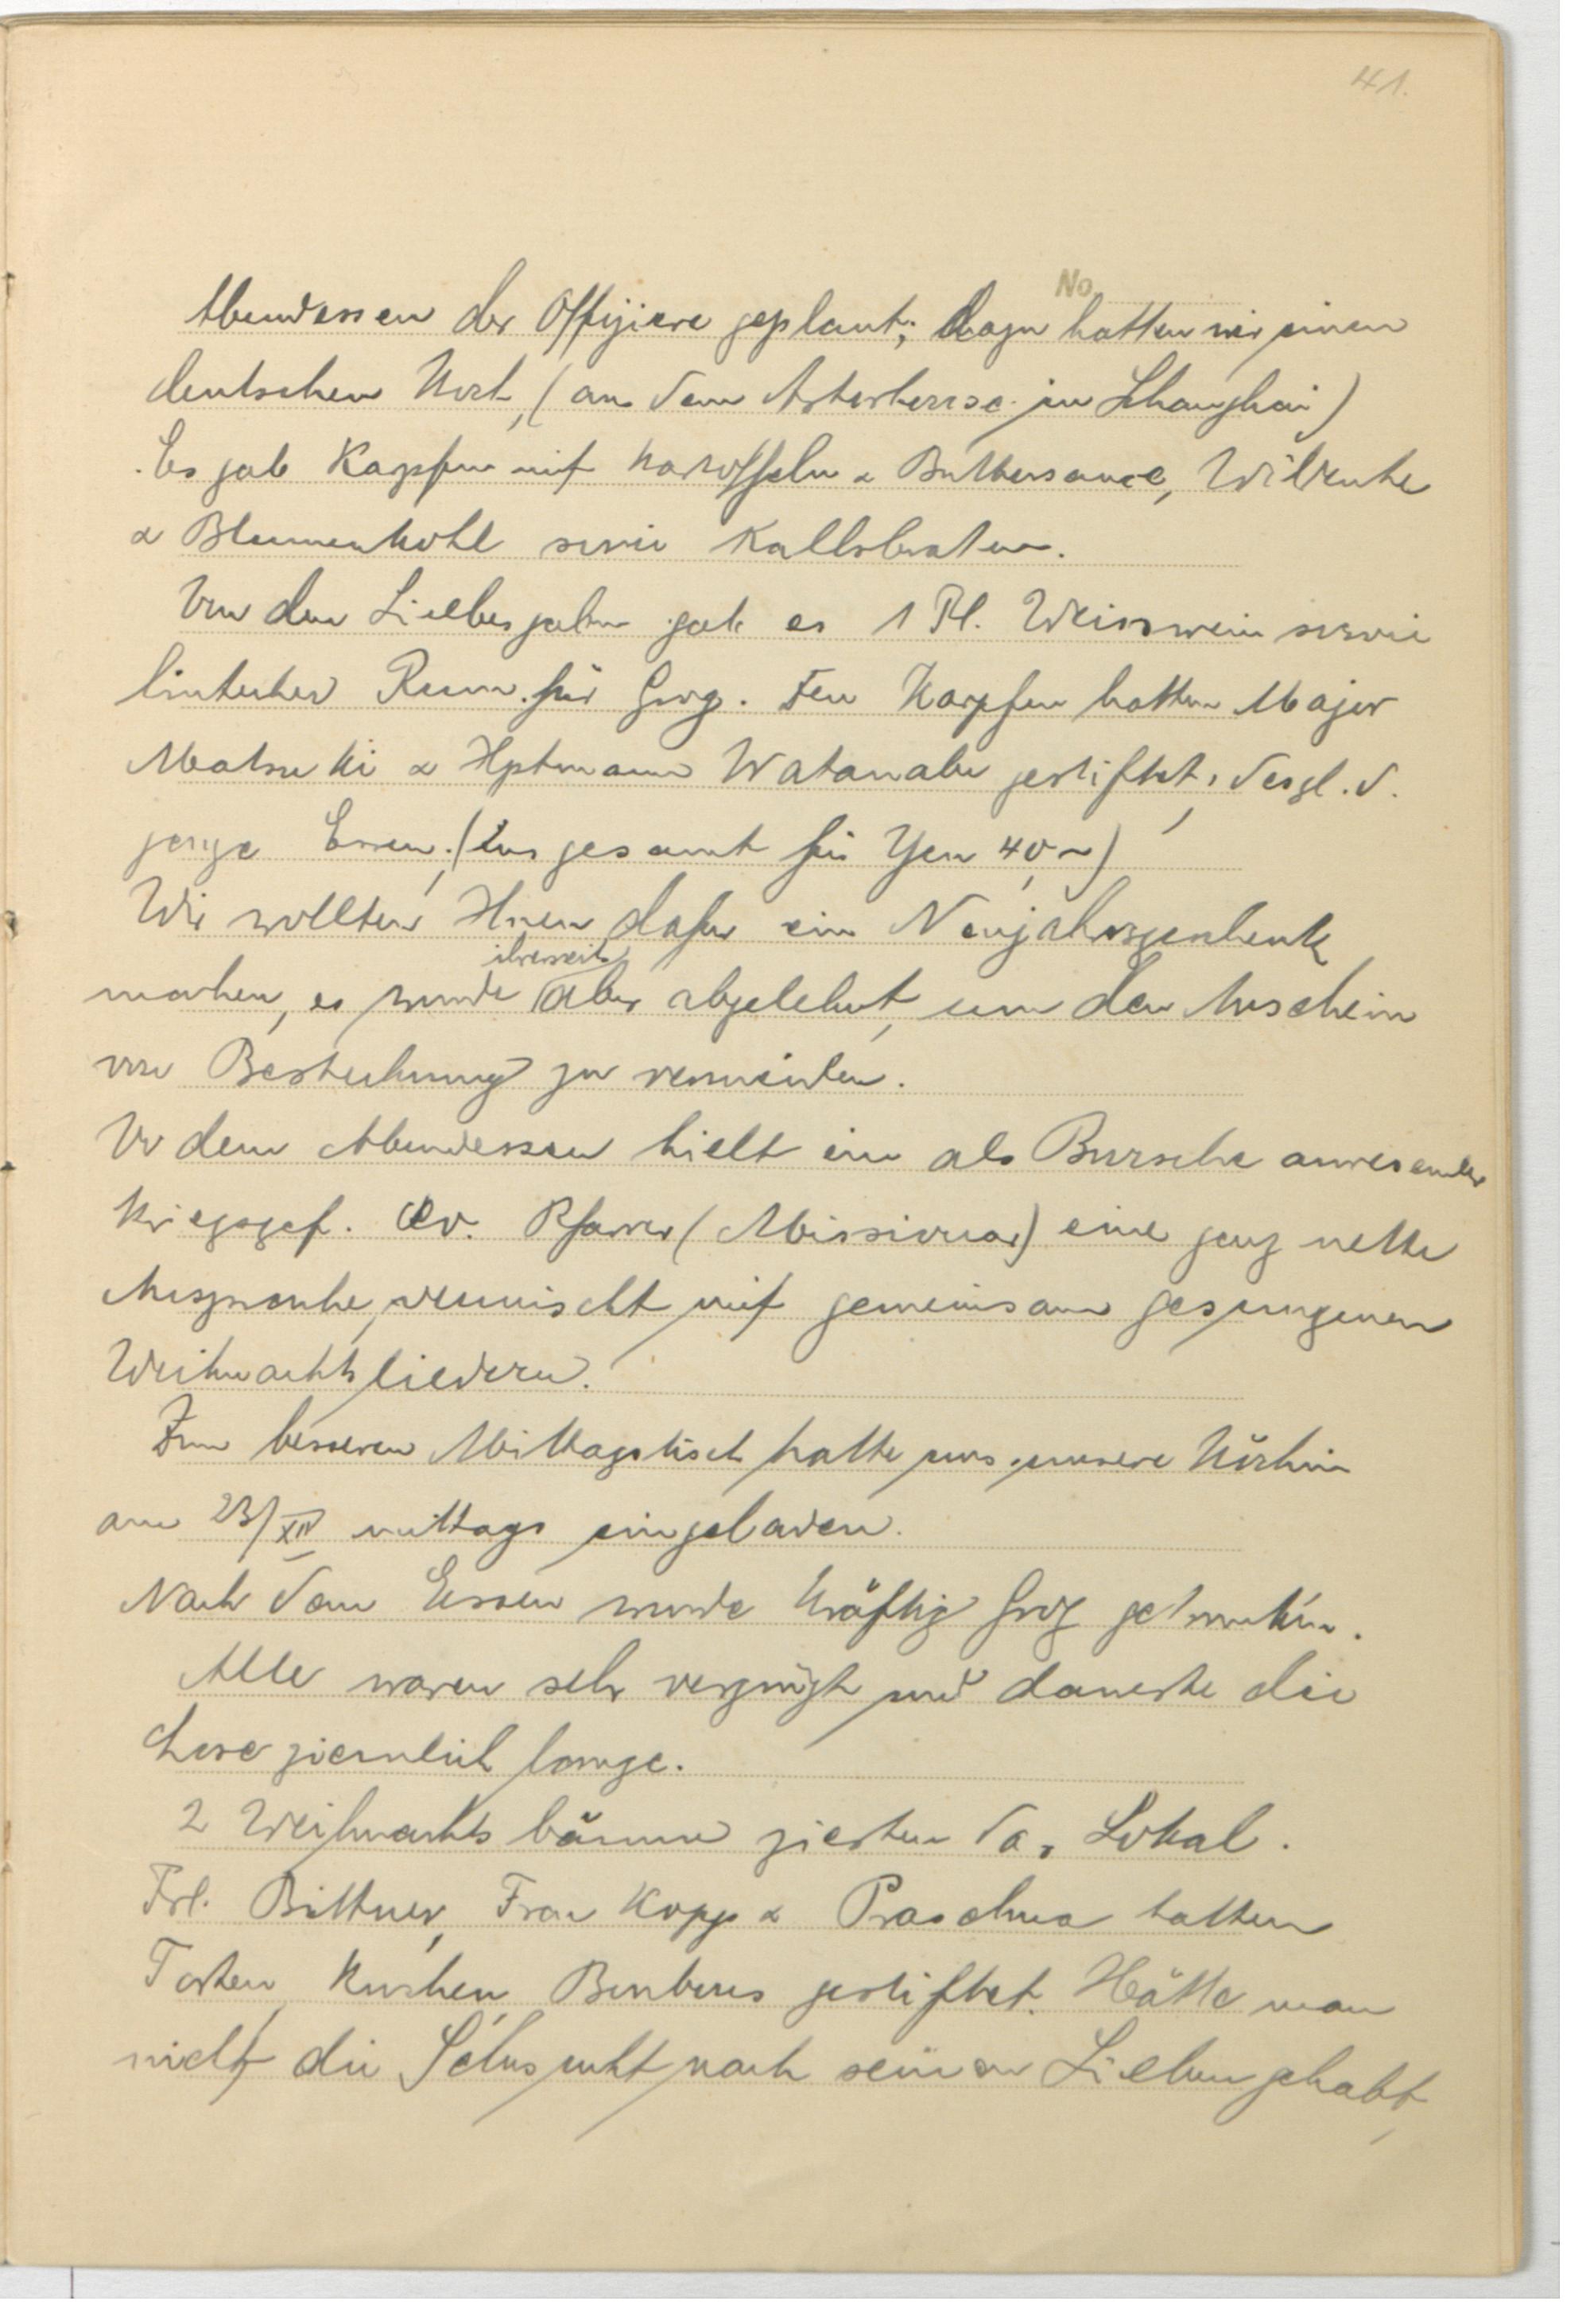 41.
Abendessen der Offiziere geplant; dazu hatten wir einen
deutschen Koch, (aus dem Astorhouse in Shanghai)
Es gab Karpfen mit Kartoffeln & Buttersauce, Wildente
& Blumenkohl sowie Kalbsbraten.
Von den Liebesgaben gab es 1 Fl. Weisswein sowie
hinterher Rum für Grog. Den Karpfen hatten Major
Matsuki & Hptmann Watanabe gestiftet, desgl. d.
ganze Essen, (insgesamt für Yen 40,~)
Wir wollten Ihnen dafür ein Neujahrsgeschenk
machen, es wurde ihrerseits aber abgelehnt, um den Anschein
von Bestechung zu vermeiden.
Vor dem Abendessen hielt ein als Bursche anwesender
Kriegsgef. ev. Pfarrer (Missionar) eine ganz nette
Ansprache, vermischt mit gemeinsam gesungenen
Weihnachtsliedern.
Zum besseren Mittagstisch hatte uns unsere Köchin
am 23/XII mittags eingeladen.
Nach dem Essen wurde kräftig Grog getrunken.
Alle waren sehr vergnügt und dauerte die
Chose ziemlich lange.
2 Weihnachtsbäume zierten das Lokal.
Frl. Bittner, Frau Kopp & Praschma hatten
Torten, Kuchen, Bonbons gestiftet. Hätte man
nicht die Sehnsucht nach seinen Lieben gehabt,